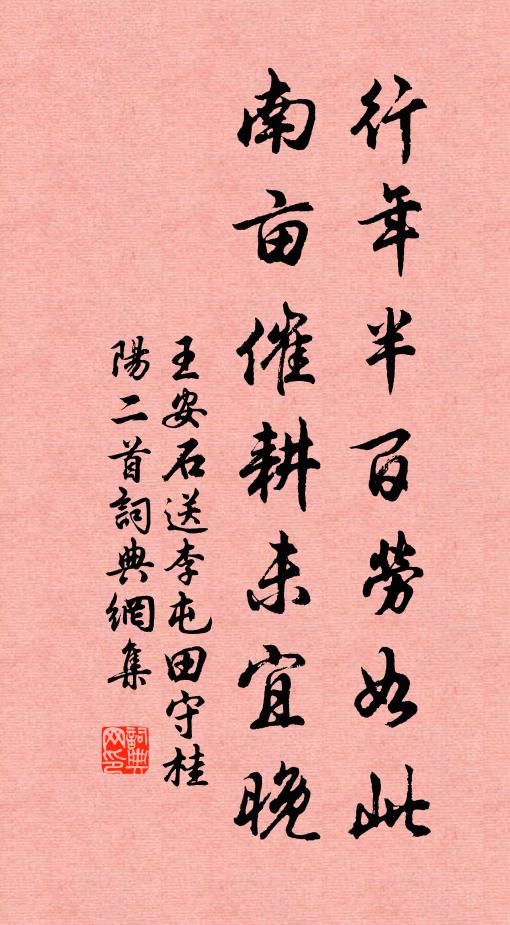 行年半百勞如此
南亩催耕未宜晚
王安石送李屯田守桂
陽二首詞典網集
詞典网印